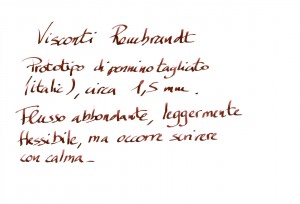 Visconti Rembrandt
Prototipo di pennino tagliato
(italic), circa 1,5 mm.
Flusso abbondante, leggermente
flessibile, ma occorre scrivere
con calma -